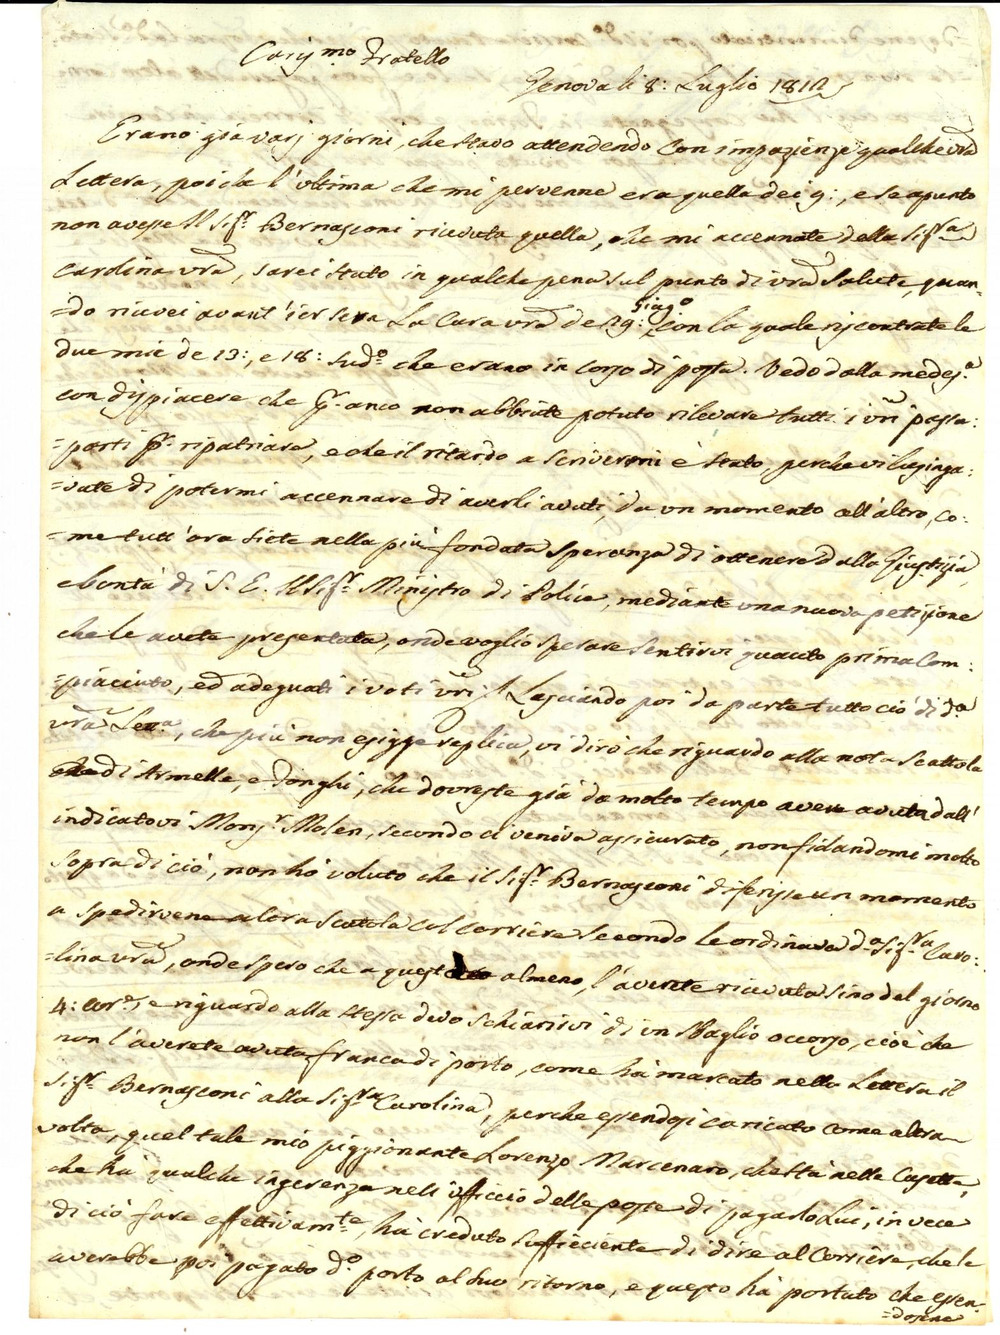 Caris.mo Fratello
Genova li 8: Luglio 1812
Erano già varj giorni, che stavo attendendo con impazienza qualche vrã
Lettera, poiche l'ultima che mi pervenne era quella dei 9:, e se apunto
non avesse Il Sig.r Bernasconi ricevuta quella, che mi accennate della Sig.ra
Carolina vrã, sarei stato in qualche pena sul punto di vrã Salute, quan-
-do ricevei avant'ier sera La Cara vrã de 29: Giug.o con la quale riscontrate le
due mie de 13:, e 18: sud.o che erano in corso di posta. Vedo dalla medes.a
con dispiacere che p.r anco non abbiate potuto rilevare tutti i vrĩ passa:
=porti p.r ripatriare, e che il ritardo a scrivermi è stato, perche vi lusinga:
=vate di potermi accennare di averli avuti, da un momento all'altro, co:
=me tutt'ora siete nella più fondata speranza di ottenere dalla Giustizia,
e bontà di S. E. Il Sig.r Ministro di Police, mediante una nuova petizione
che le avete presentata, onde voglio sperare sentirvi quanto prima Com:
=piaciuto, ed adeguati i voti vrĩ. Lasciando poi da parte tutto ciò di d.a
vrã Lett.a, che più non esigge replica, vi dirò che riguardo alla nota Scattola
di Armelle, e Fonghi, che dovreste già da molto tempo avere avuta dall'
indicatovi Mons.r Molen, secondo ci veniva assicurato, non fidandomi molto
sopra di ciò, non hò voluto che il Sig.r Bernasconi diferisse un momento
a spedirvene altra scatola col corriere secondo le ordinava d.a Sig.ra Caro:
=lina vrã, onde spero che a quest' almeno, l'averete ricevuta sino del giorno
4: cor.e, e riguardo alla stessa devo schiarirvi di un sbaglio occorso, cioè che
non l'averete avuta franca di porto, come hà marcato nella Lettera il
Sig.r Bernasconi alla Sig.ra Carolina, perche essendosi caricato come altra
volta, quel tale mio piggionante Lorenzo Marcenaro, che stà nella Casetta,
che hà qualche ingerenza nell'ufficio delle poste di pagarlo Lui, in vece
di ciò fare effettivam.te, hà creduto sufficiente di dire al Corriere, che le
averebbe poi pagato d.o porto al suo ritorno, e questo hà portato che essen-
=dosene